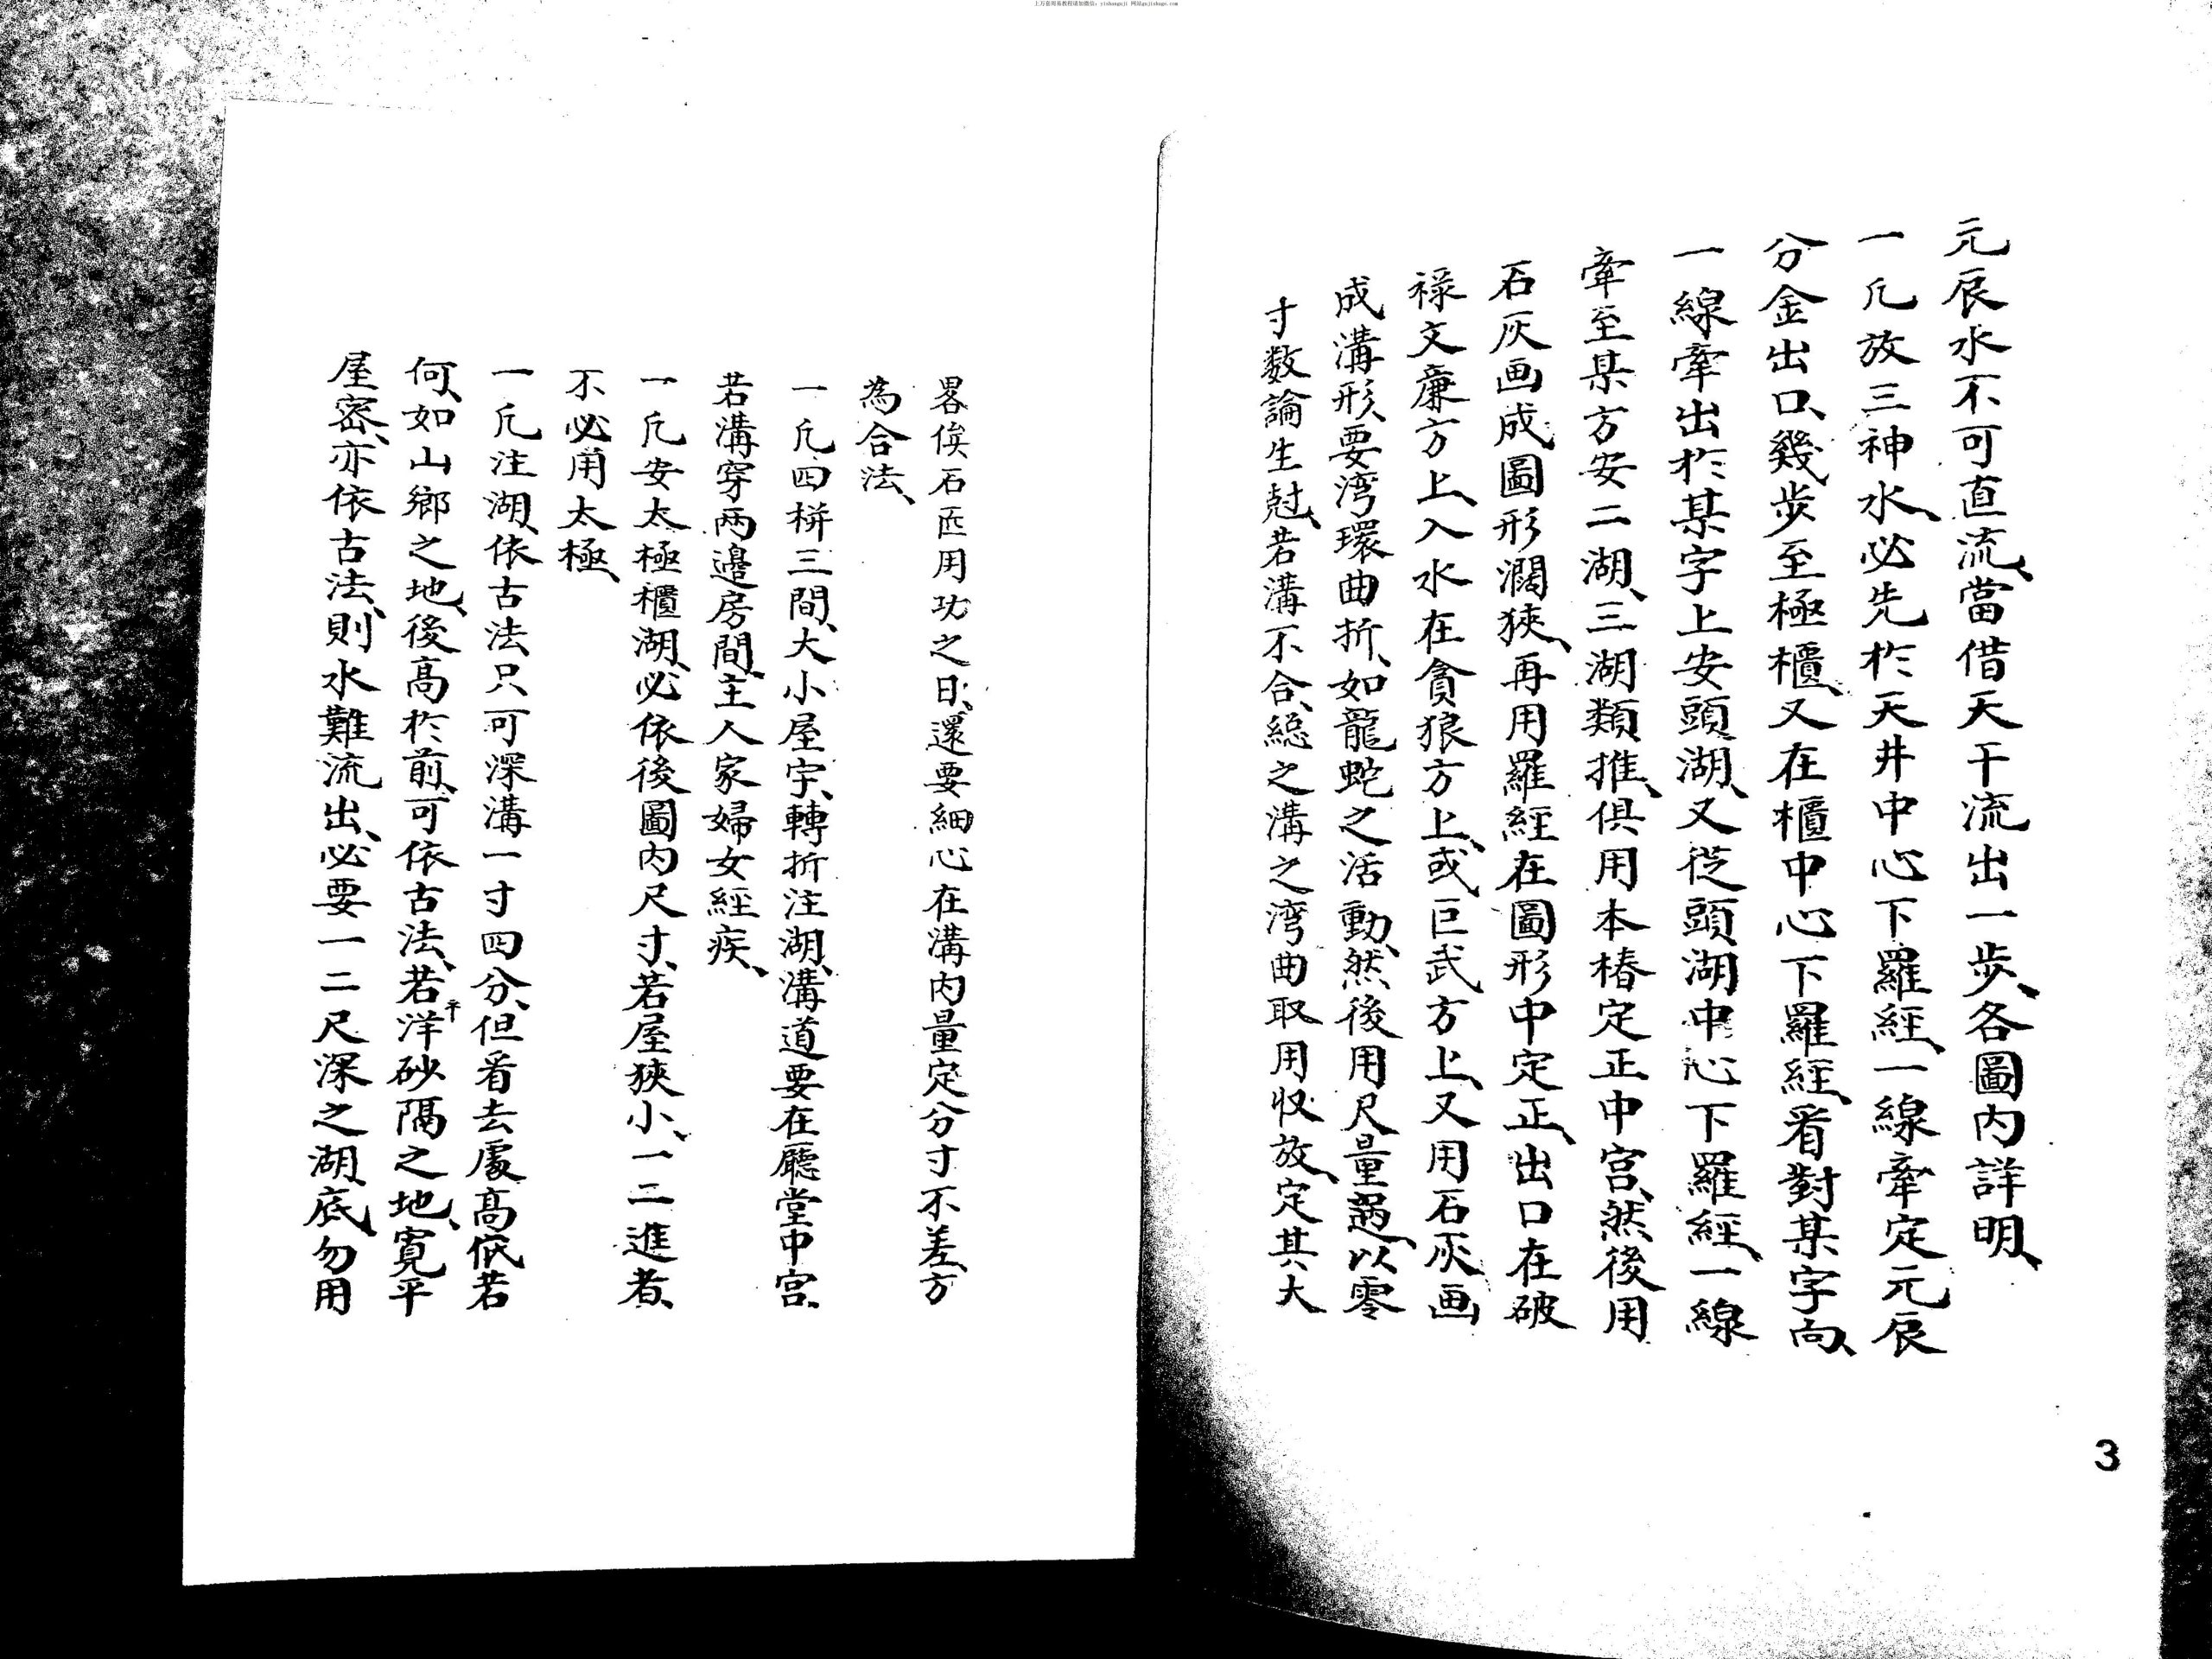 上万套周易教程请加微信：yishanguji 网站gujishage.com
元辰水不可直流、當借天干流出一步、各圖內詳明、
一凢放三神水、必先扵天井中心下羅經、一線牽定元辰
分金出口、幾步至極櫃、又在櫃中心下羅經、看對某字向、
一線牽出扵某字上安頭湖、又從頭湖中心下羅經、一線
牽至某方安二湖、三湖類推、俱用本樁定正中宮、然後用
石灰画成圖形濶狹、再用羅經在圖形中定正、出口在破
祿文廉方上、入水在貪狼方上、或巨武方上、又用石灰画
成溝形、要湾環曲折、如龍蛇之活動、然後用尺量過、以零
寸数論生尅、若溝不合、總之溝之湾曲取用收放、定其大
畧俟石匠用功之日、還要細心在溝內量定分寸不差、方
為合法、
一凢四栟三間、大小屋宇、轉折注湖、溝道要在廳堂中宮、
若溝穿兩邊房間、主人家婦女經疾、
一凢安太極櫃湖、必依後圖內尺寸、若屋狹小、一二進者、
不必用太極、
一凢注湖、依古法只可深溝一寸四分、但看去處高低若
何、如山鄉之地、後高扵前、可依古法、若平洋砂隔之地、寬平
屋密、亦依古法、則水難流出、必要一二尺深之湖底、勿用
3